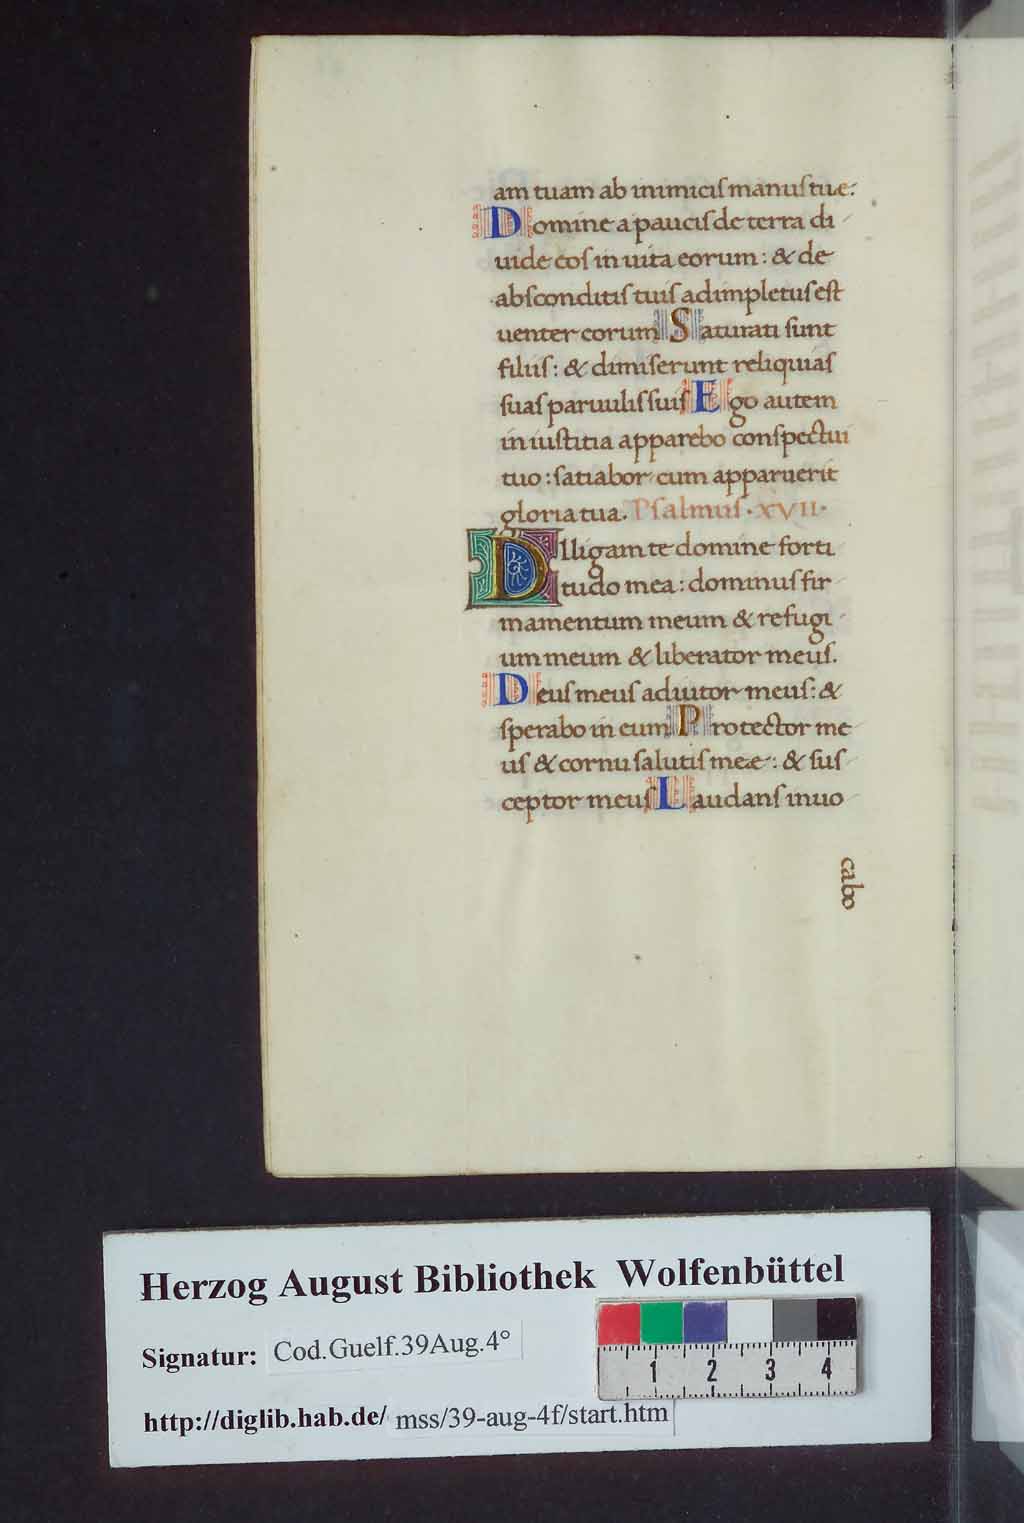 am tuam ab inimicis manus tue:
Domine a paucis de terra di
uide eos in uita eorum: & de
absconditis tuis adimpletus est
uenter eorum Saturati sunt
filiis: & dimiserunt reliquias
suas paruulis suis Ego autem
in iustitia apparebo conspectui
tuo: satiabor cum apparuerit
gloria tua. Psalmus · XVII ·
Dlligam te domine forti
tudo mea: dominus fir
mamentum meum & refugi
um meum & liberator meus.
Deus meus adiutor meus: &
sperabo in eum Protector me
us & cornu salutis meae: & sus
ceptor meus Laudans inuo
cabo
Herzog August Bibliothek Wolfenbüttel
Signatur: Cod.Guelf.39Aug.4°
1 2 3 4
http://diglib.hab.de/ mss/39-aug-4f/start.htm